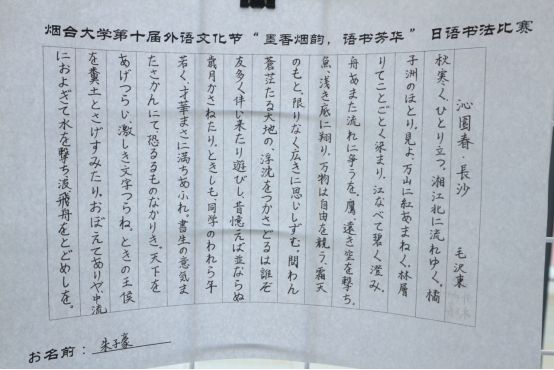 烟台大学第十届外语文化节“墨香烟韵，语书芳华”日语书法比赛
沁園春·長沙 毛沢東
秋寒く、ひとり立つ、湘江北に流れゆく、橘
子洲のほとり。見よ、万山に紅あまねく、林層
りてことごとく染まり、江なべて碧く澄み、
舟あまた流れに争うを。鷹、遠き空を撃ち、
魚、浅き底に翔り、万物は自由を競う、霜天
のもと、限りなく広きに思いしずむ。問わん
蒼茫たる大地の、浮沈をつかさどるは誰ぞ
友多く伴い来たり遊びし、昔憶えば並ならぬ
歳月かさねたり、ときしも、同学のわれら年
若く、才華まさに満ちあふれ。書生の意気ま
たさかんにて、恐るるものなかりき。天下を
あげつらい、激しき文字つらね、ときの王侯
を糞土とさげすみたり。おぼえてありや、中流
におよぎて水を撃ち、浪、飛舟をとどめしを。
お名前：朱子豪